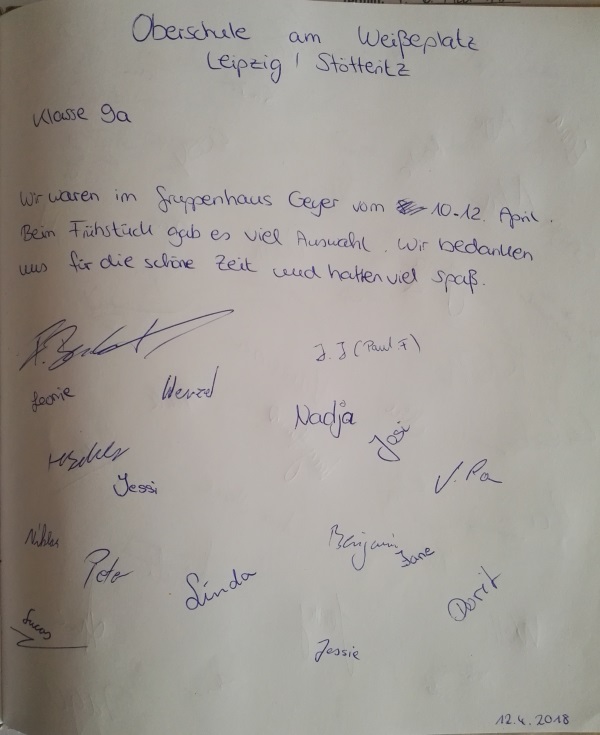 Oberschule am Weißeplatz
Leipzig / Stötteritz
Klasse 9a
Wir waren im Gruppenhaus Geyer vom 10-12. April.
Beim Frühstück gab es viel Auswahl. Wir bedanken
uns für die schöne Zeit und hatten viel Spaß.
J. J (Paul F)
Leonie Wenzel
Nadja
Josi
Jessi
V. Pa
Niklas
Benjamin
Jane
Peter
Linda
Dorit
Lucas
Jessie
12.4.2018